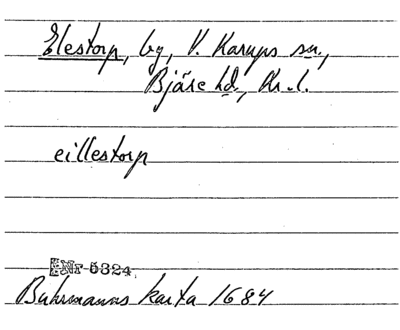 Elestorp, by, V. Karups sn.,
Bjäre hd., Kr. l.
eillestorp
Nr 5324
Buhrmanns karta 1684